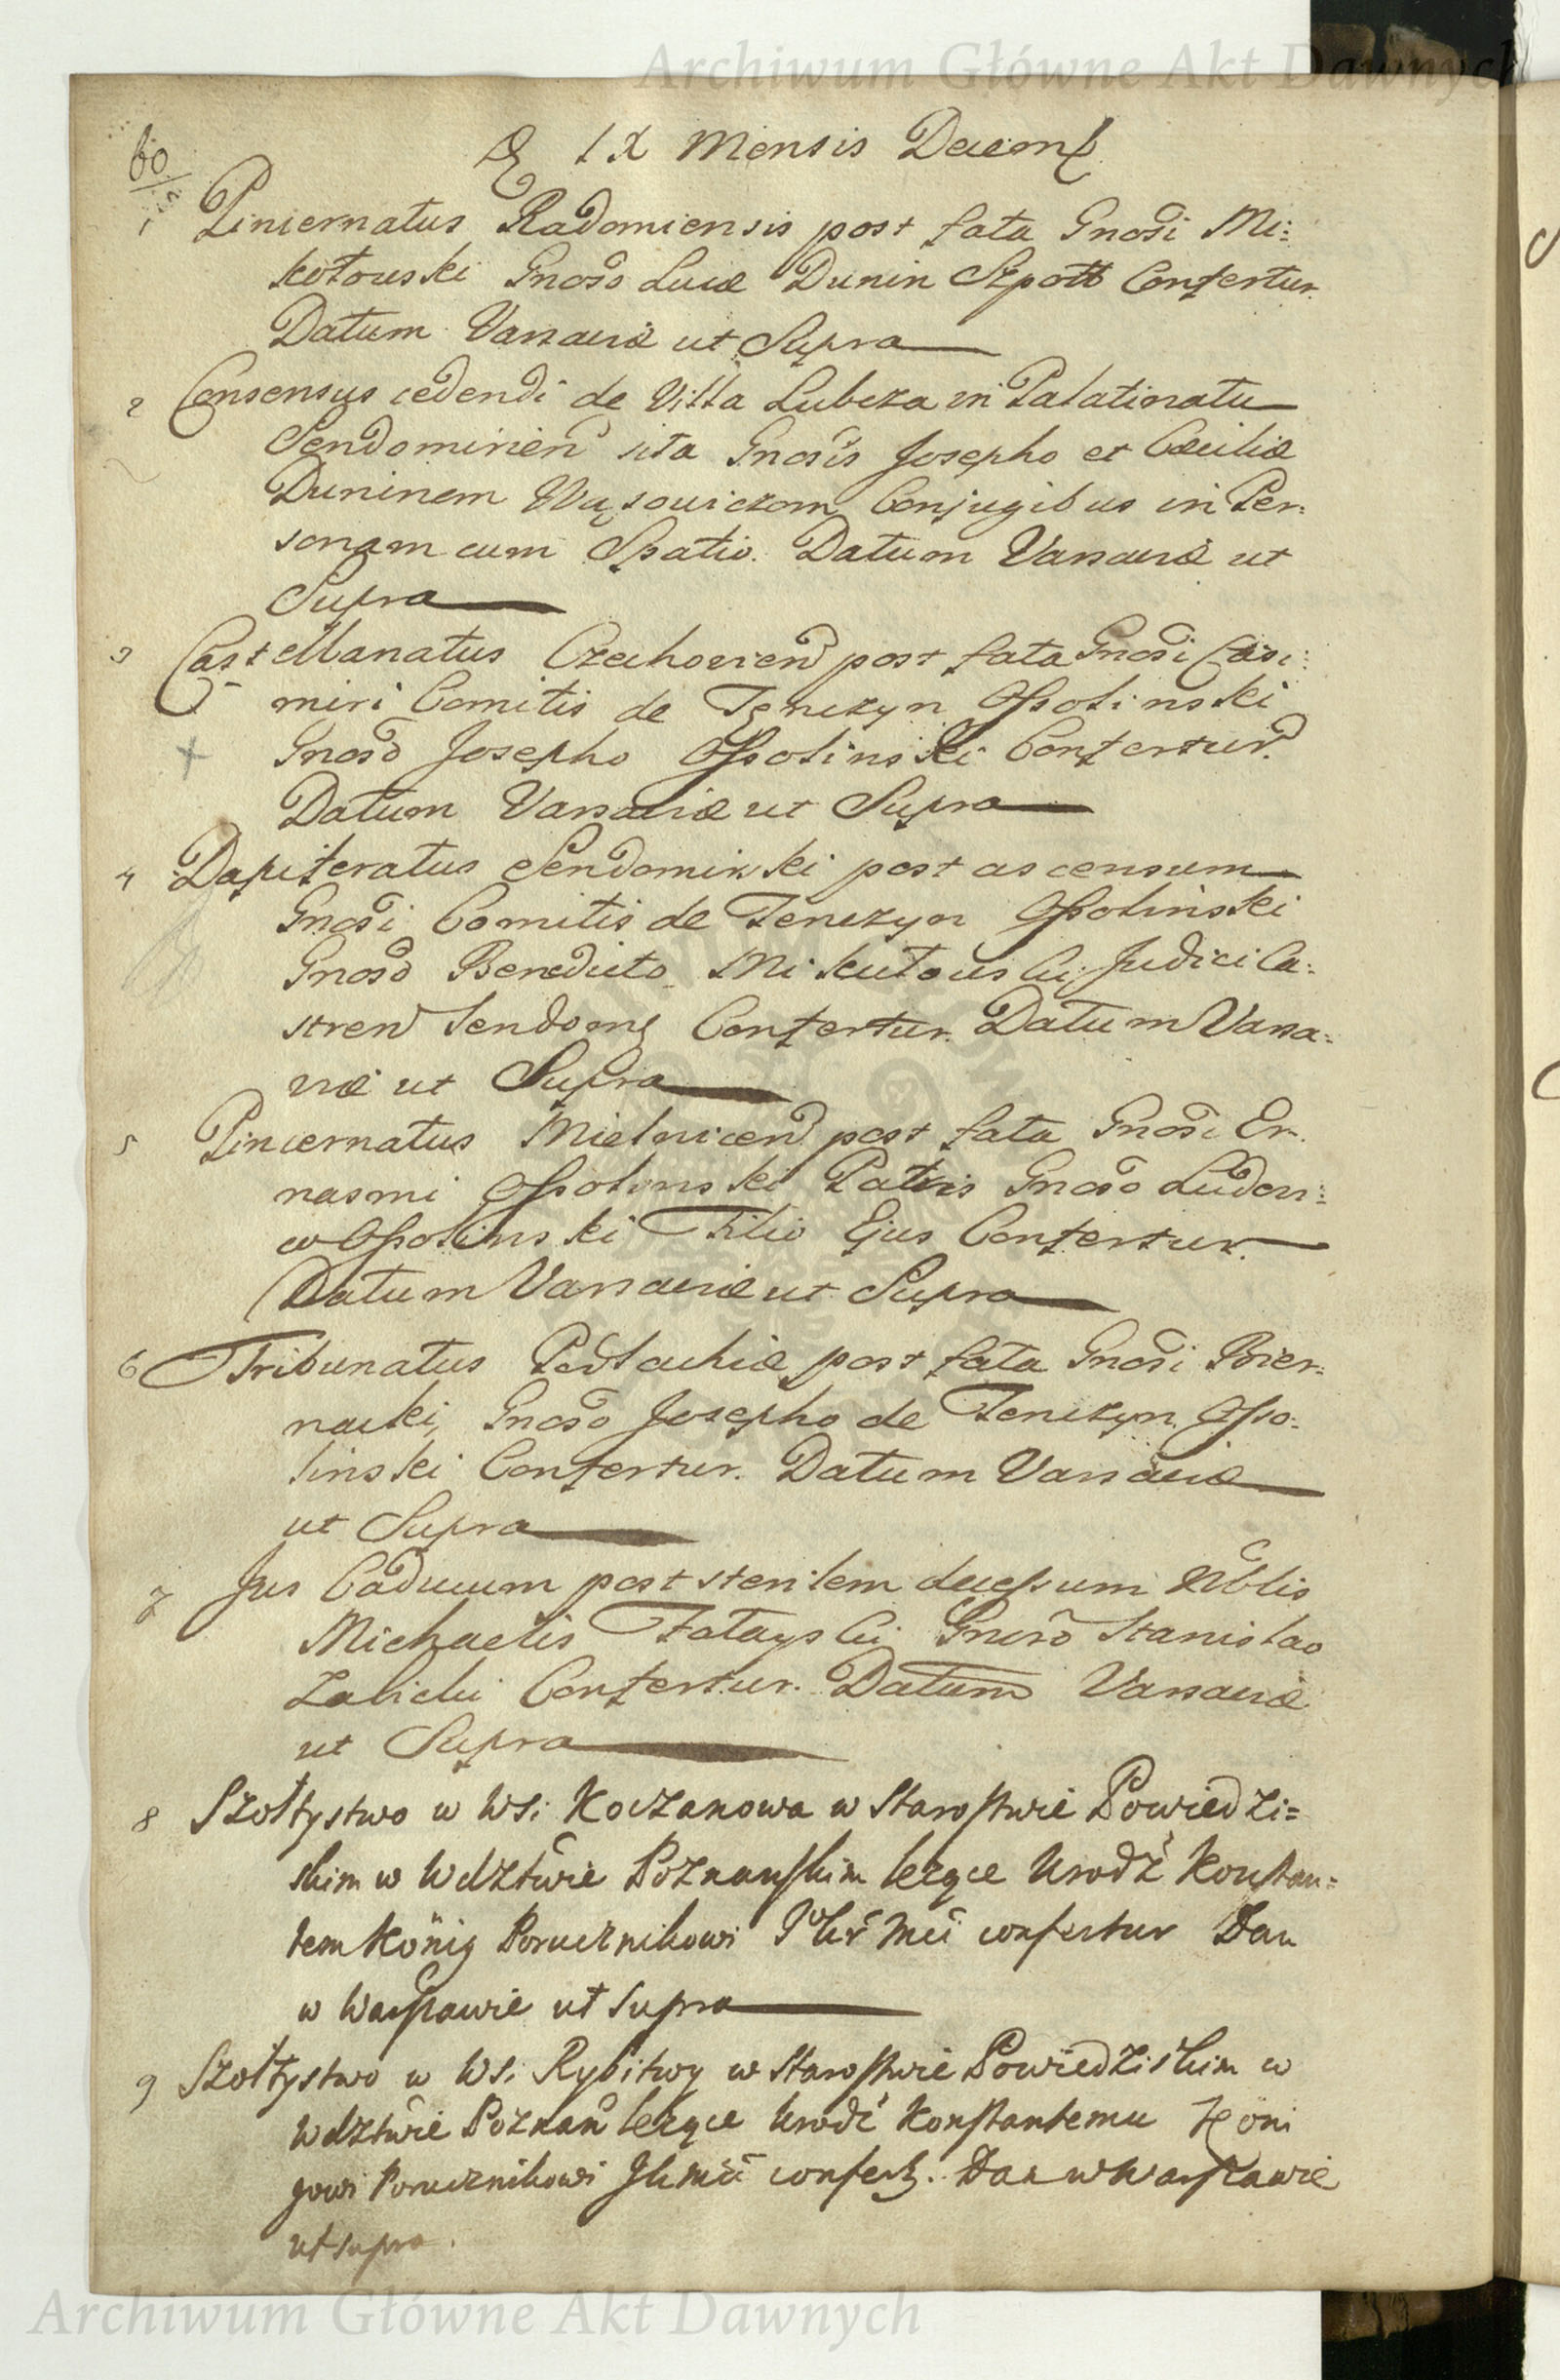 Archiwum Główne Akt Dawnych
60
D. IX Mensis Decemb
1 Pincernatus Radomiensis post fata Gnosi Mi:
kołouski Gnoso Lucæ Dunin Szpott Confertur.
Datum Varsaviæ ut Supra
2 Consensus cedendi de Villa Lubcza in Palatinatu
Sendomirien sita Gnosis Josepho et Cæciliæ
Duninem Wąsowiczom Conjugibus in Per:
sonam cum Spatio. Datum Varsaviæ ut
Supra
3 Castellanatus Czechovien post fata Gnosi Casi:
miri Comitis de Tęnczyn Ossolinski
Gnoso Josepho Ossolinski Confertur.
Datum Varsaviæ ut Supra
4 Dapiferatus Sendomirski post ascensum
Gnosi Comitis de Tenczyn Ossolinski
Gnoso Benedicto Mikułouski Judici Ca:
stren Sendom Confertur. Datum Varsa:
viæ ut Supra
5 Pincernatus Mielnicen post fata Gnosi Er:
nasmi Ossolinski Patris Gnoso Ludovi:
co Ossolinski Filio Ejus Confertur.
Datum Varsaviæ ut Supra
6 Tribunatus Podlachiæ post fata Gnosi Bier:
nacki, Gnoso Josepho de Tenczyn Osso:
linski Confertur. Datum Varsaviæ
ut Supra
7 Jus Caducum post sterilem decessum Noblis
Michaelis Fatayski Gnoso Stanislao
Zalicki Confertur. Datum Varsaviæ
ut Supra
8 Szołtystwo w Wsi Koczanowa w Starostwie Powiedzi=
skim w Wdztwie Poznanskim leżące Urodź Konstan=
tem König Porucznikowi JKr Mci confertur Dan
w Warszawie ut supra
9 Szołtystwo w Wsi Rybitwy w Starostwie Powiedziskim w
Wdztwie Poznan leżące Urodź Konstantemu Köni
gowi Porucznikowi JKMci confert. Dan w Warszawie
ut supra.
Archiwum Główne Akt Dawnych